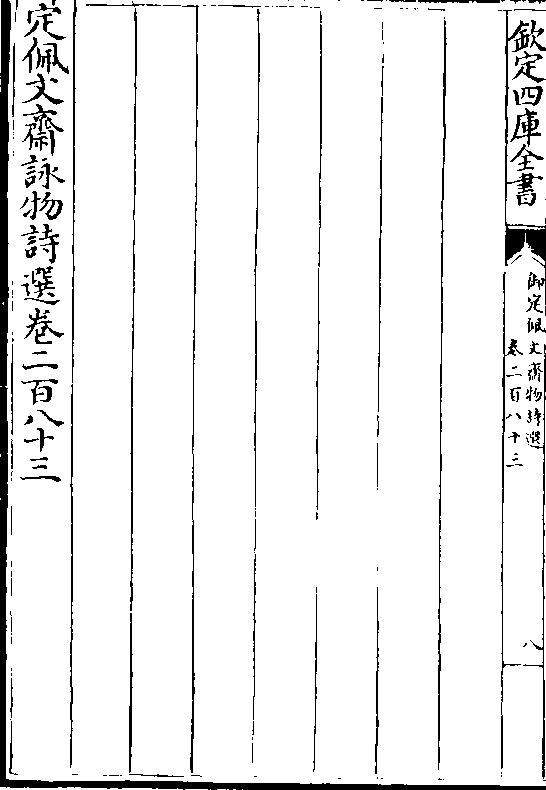 欽定四庫全書
御定佩文齋物詩選
卷二百八十三
八
定佩文齋詠物詩選卷二百八十三